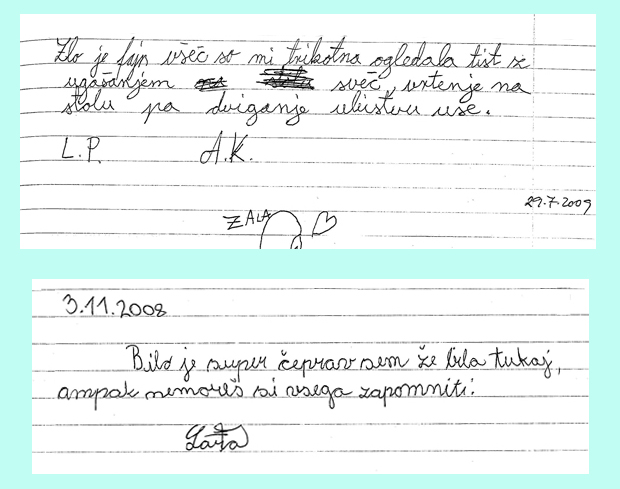 Zlo je fajn všeč so mi trikotna ogledala tist z
ugašanjem sveč, vrtenje na
stolu pa dviganje ubistvu use.
L.P. A.K.
29.7.2009
ZALA
3.11.2008
Bilo je super čeprav sem že bila tukaj,
ampak nemoreš si vsega zapomniti!